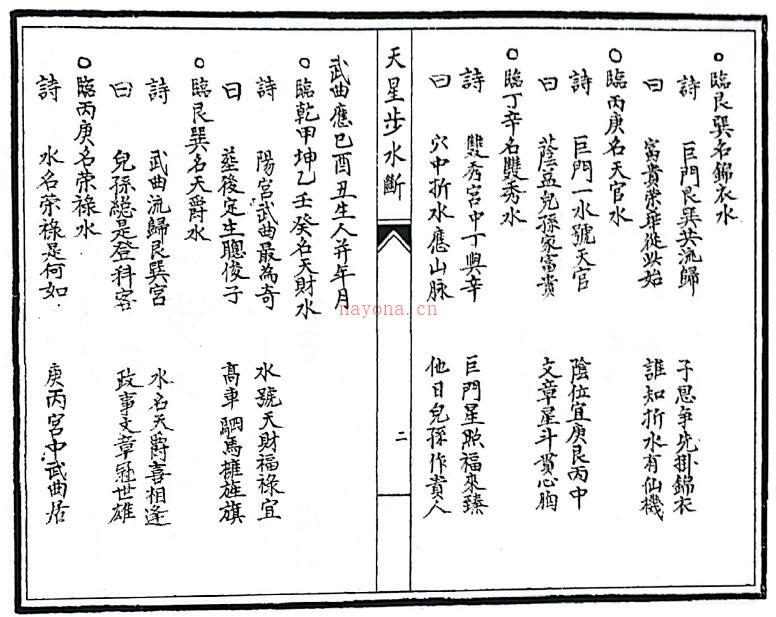 ○臨艮巽名錦衣水
詩 巨門艮巽共流歸 子思爭先掛錦衣
曰 富貴榮華從此始 誰知折水有仙機
○臨丙庚名天官水
詩 巨門一水號天官 陰位宜庚艮丙中
曰 蔭益兒孫家富貴 文章星斗貫心胸
○臨丁辛名雙秀水
詩 雙秀宮中丁與辛 巨門星照福來臻
曰 穴中折水應山脉 他日兒孫作貴人
天星步水斷
二
武曲應巳酉丑生人并年月
○臨乾甲坤乙壬癸名天財水
詩 陽宮武曲最為奇 水號天財福祿宜
曰 塟後定生聰俊子 高車駟馬擁旌旗
○臨艮巽名天爵水
詩 武曲流歸艮巽宮 水名天爵喜相逢
曰 兒孫總是登科客 政事文章冠世雄
○臨丙庚名荣祿水
詩 水名荣祿是何如 庚丙宮中武曲居
nayona.cn